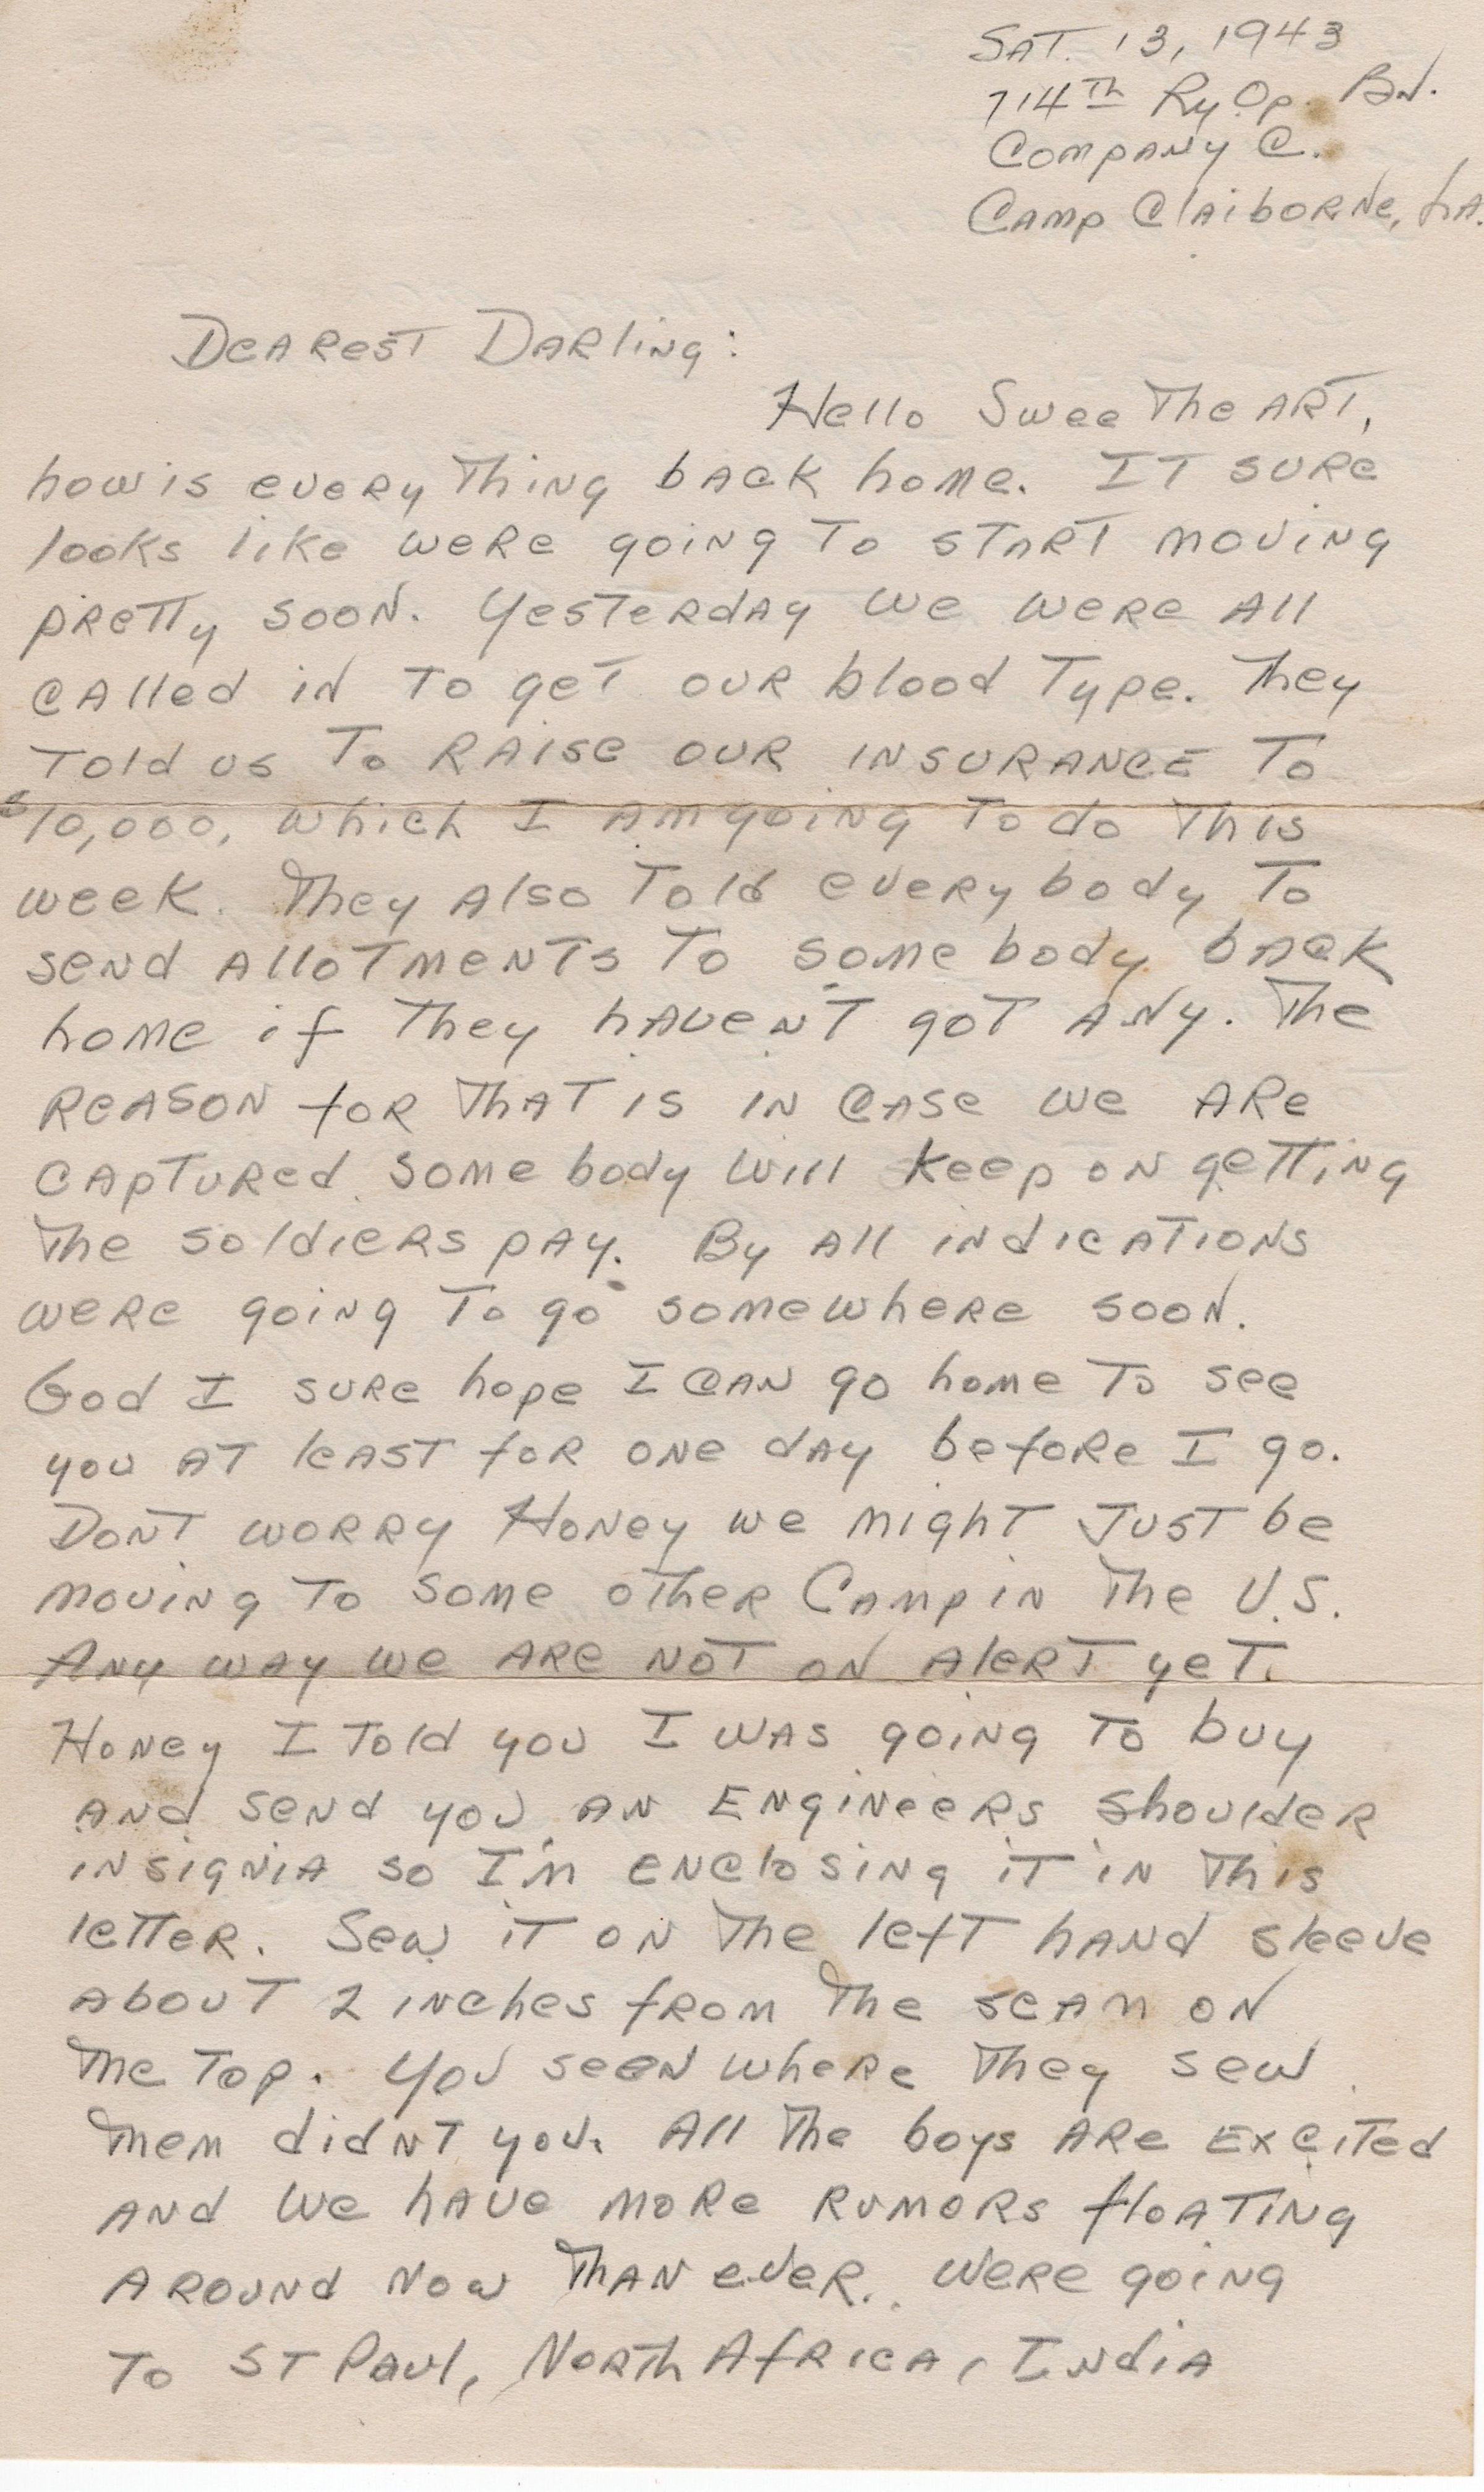 SAT. 13, 1943
714Th Ry Op. Bn.
Company C.
Camp Claiborne, La.
Dearest Darling:
Hello Sweetheart,
how is everything back home. It sure
looks like were going to start moving
pretty soon. Yesterday we were all
called in to get our blood type. They
told us to raise our insurance to
$10,000, which I am going to do this
week. They also told everybody to
send allotments to somebody back
home if they haven't got any. The
reason for that is in case we are
captured somebody will keep on getting
the soldiers pay. By all indications
were going to go somewhere soon.
God I sure hope I can go home to see
you at least for one day before I go.
Dont worry Honey we might just be
moving to some other Camp in the U.S.
Any way we are not on alert yet.
Honey I told you I was going to buy
and send you an Engineers shoulder
insignia so I'm enclosing it in this
letter. Sew it on the left hand sleeve
about 2 inches from the seam on
the top. You seen where they sew
them didnt you. All the boys are excited
and we have more rumors floating
around now than ever. Were going
to St Paul, North Africa, India